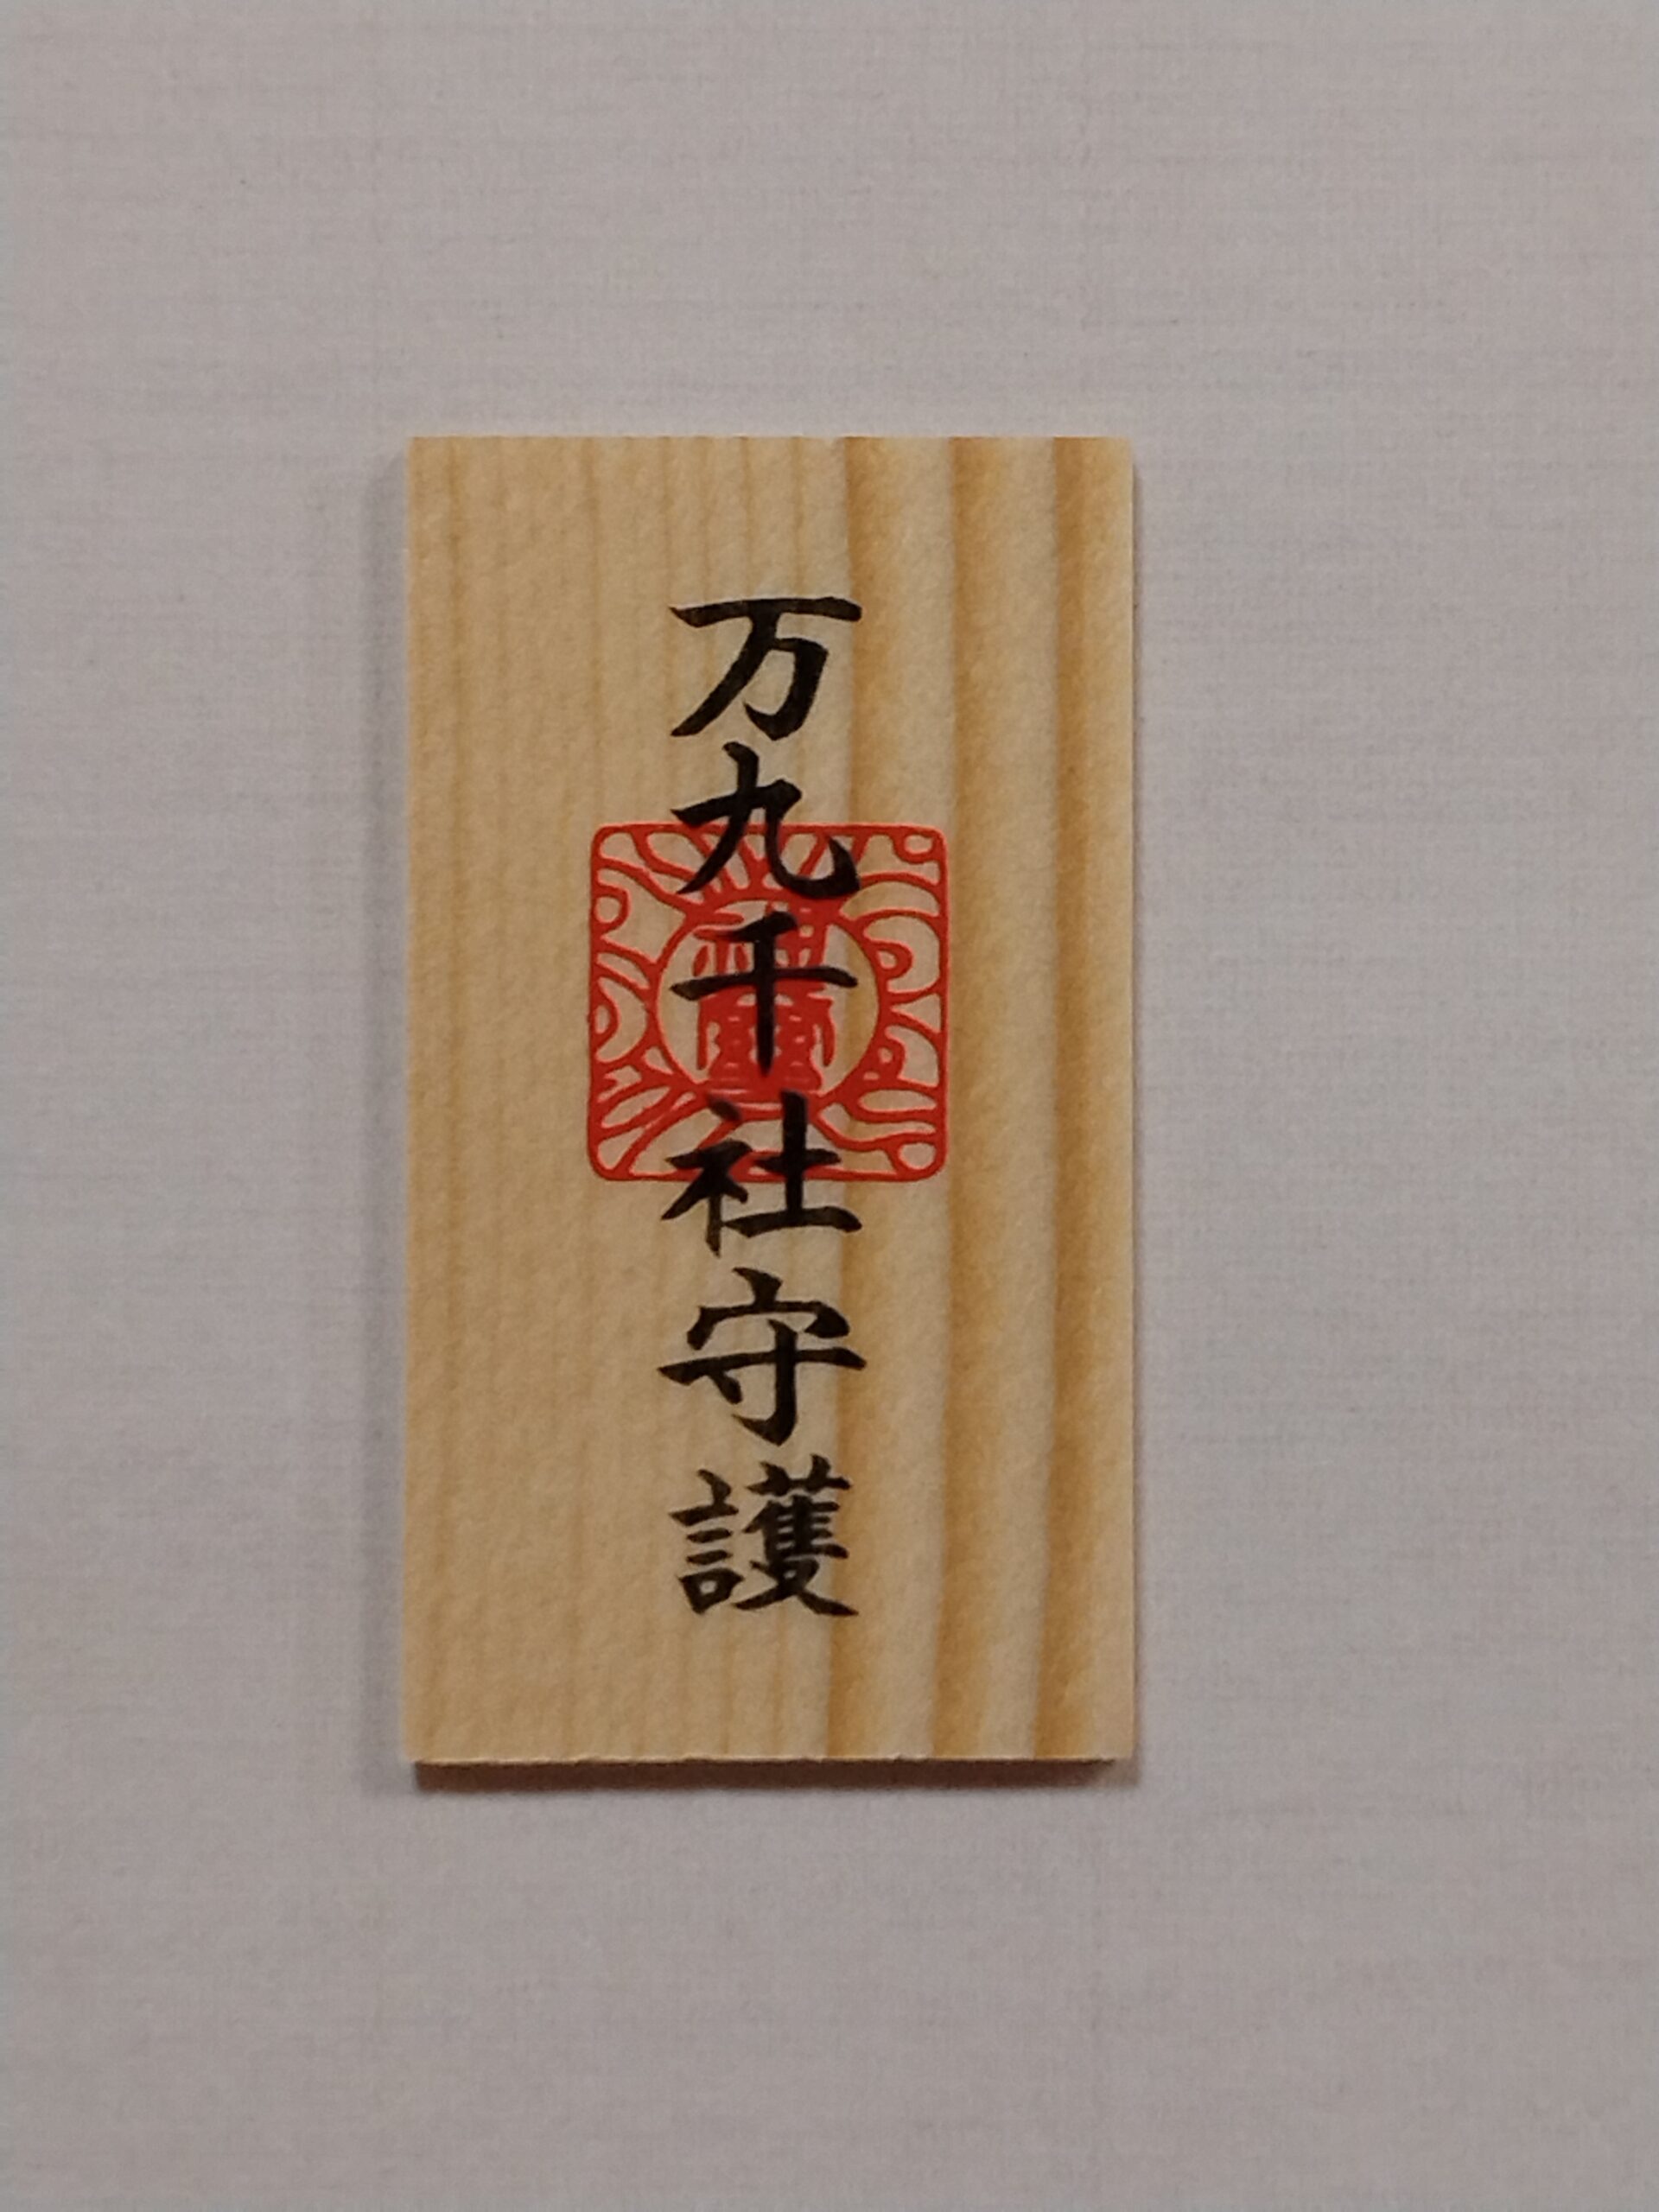 万九千社守護